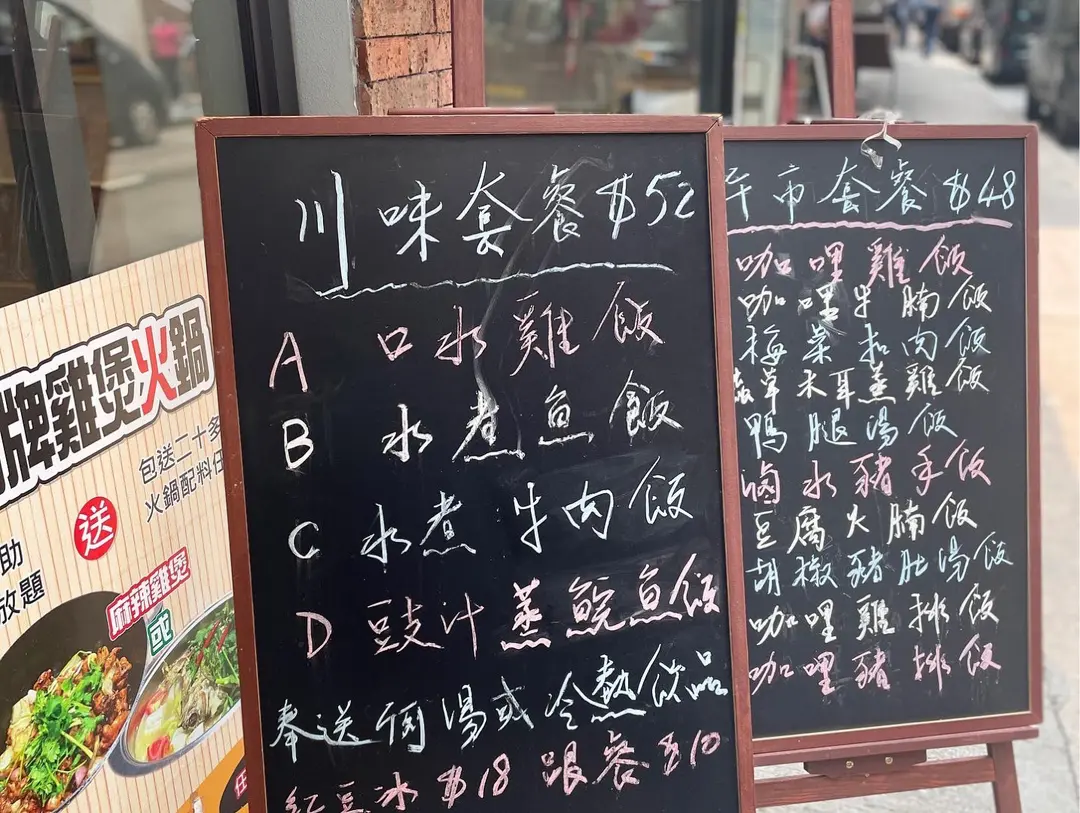 川味套餐$52
A 口水雞飯
B 水煮魚飯
C 水煮牛肉飯
D 豉汁蒸鯇魚飯
奉送例湯或冷熱飲品
紅豆冰$18 跟餐$10
午市套餐$48
咖哩雞飯
咖哩牛腩飯
梅菜扣肉飯
木耳蒸雞飯
鴨腿湯飯
滷水豬手飯
豆腐火腩飯
胡椒豬肚湯飯
咖哩雞排飯
咖哩豬排飯
牌雞煲火鍋
包送二十多
火鍋配料任
送
助
放題
麻辣雞煲
或